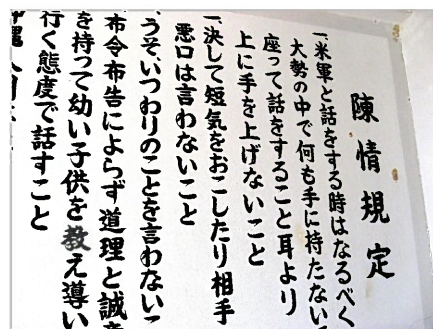 陳情規定
一、米軍と話をする時はなるべく
大勢の中で何も手に持たない
座って話をすること耳より
上に手を上げないこと
一、決して短気をおこしたり相手
悪口は言わないこと
うそ、いつわりのことを言わない
布令布告によらず道理と誠意
を持って幼い子供を教え導い
行く態度で話すこと